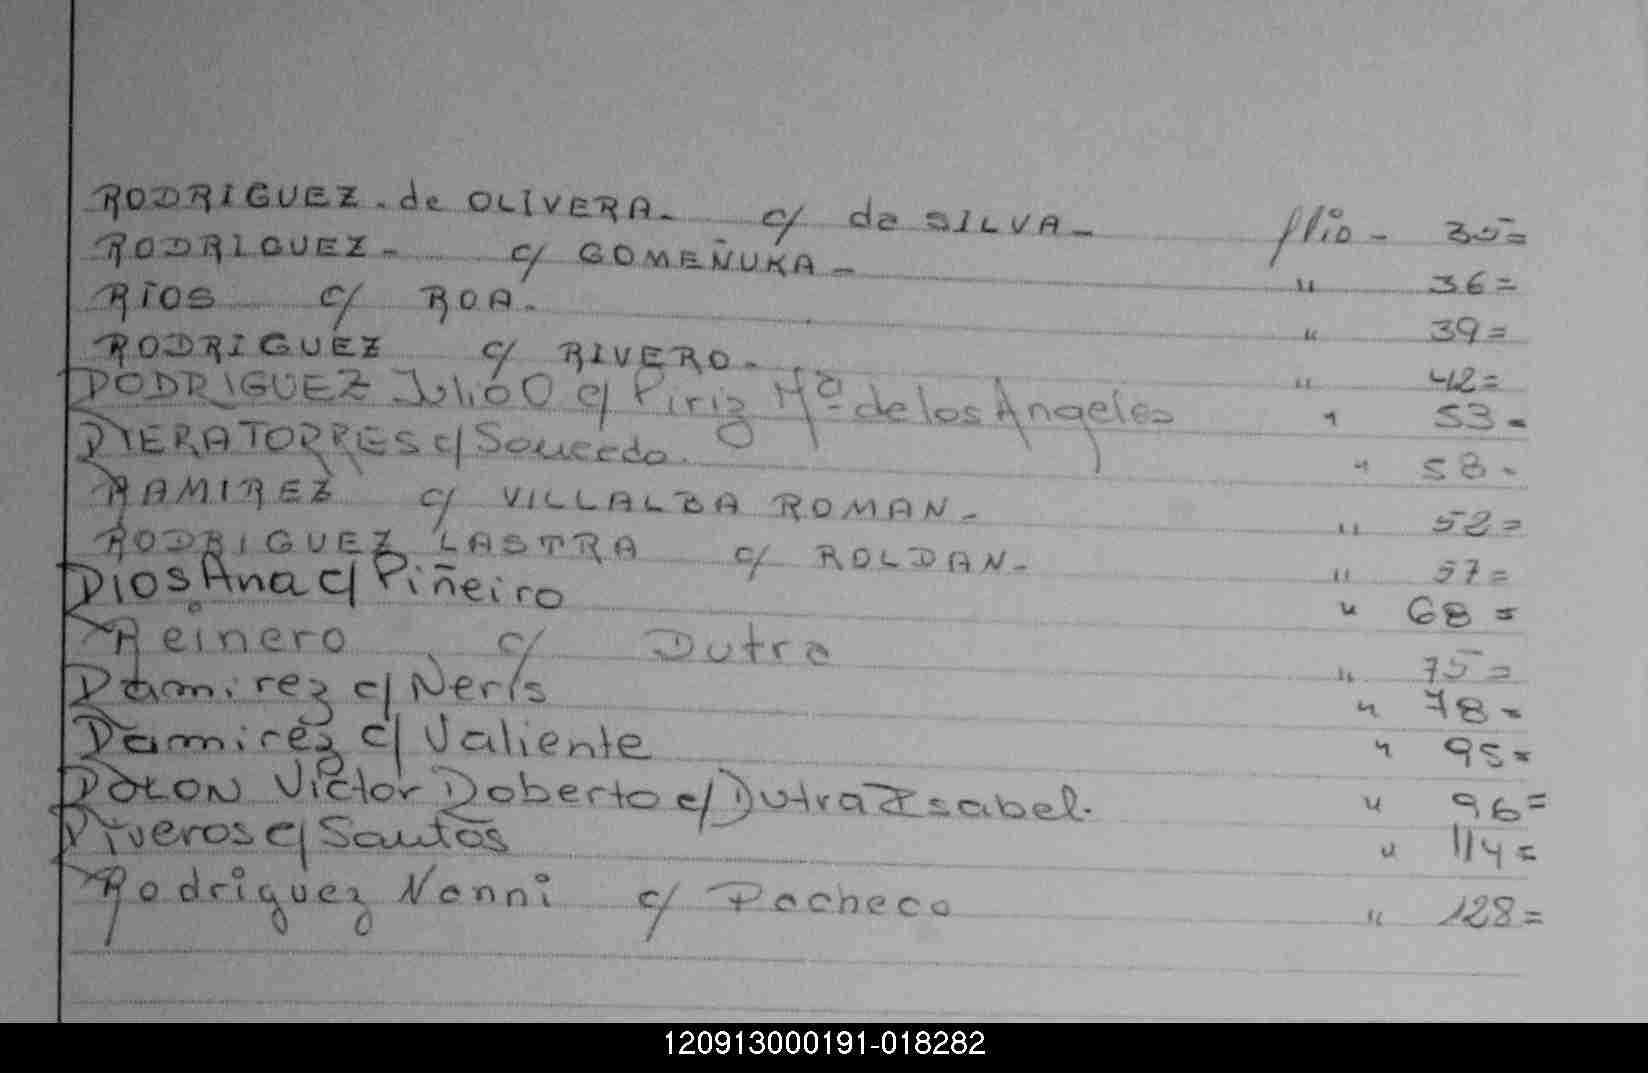 RODRIGUEZ. de OLIVERA. c/ da SILVA. fllio - 35=
RODRIGUEZ - c/ GOMEÑUKA - " 36=
RIOS c/ ROA. " 39=
RODRIGUEZ c/ RIVERO. " 42=
RODRIGUEZ Julio O c/ Piriz Mª de los Angeles " 53=
RIERA TORRES c/ Saucedo. " 58-
RAMIREZ c/ VILLALBA ROMAN. " 52=
RODRIGUEZ LASTRA c/ ROLDAN. " 57=
RIOS Ana c/ Piñeiro " 68=
Reinero c/ Dutra " 75=
Ramirez c/ Neris " 78=
Ramirez c/ Valiente " 95=
ROLON Victor Roberto c/ Dutra Isabel. " 96=
Riveros c/ Santos " 114=
Rodriguez Nanni c/ Pacheco " 128=
120913000191-018282